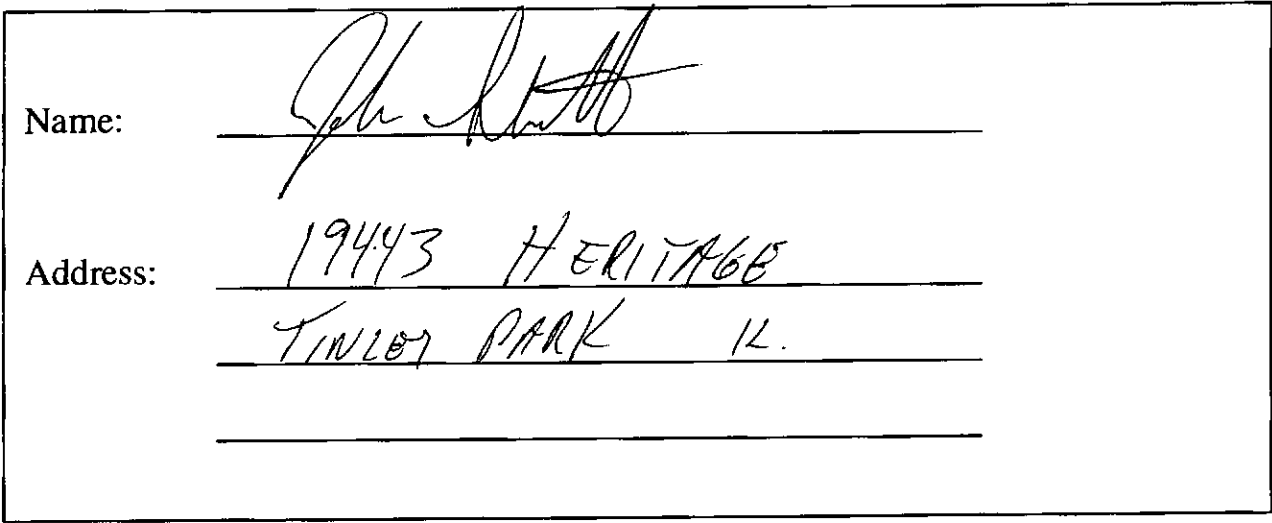 Name: John
Address: 19443 HERITAGE
TINLEY PARK IL.